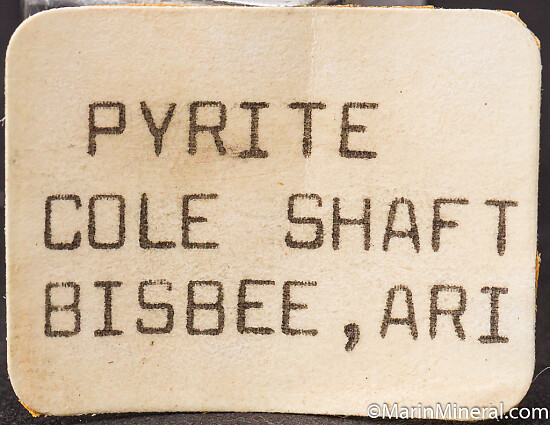 PYRITE
COLE SHAFT
BISBEE, ARI
©MarinMineral.com